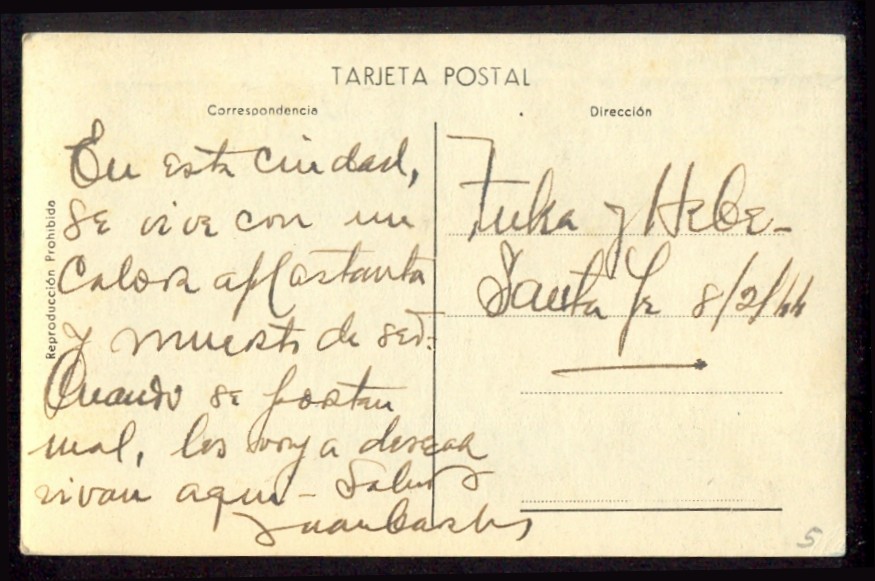 TARJETA POSTAL
Correspondencia
Dirección
Reproducción Prohibida
En esta ciudad,
se vive con un
calor aplastante
y muerto de sed.
Cuando se portan
mal, les voy a desear
vivan aquí - Saludos
Juan Carlos
y Hebe -
Santa Fe 8/2/44
5